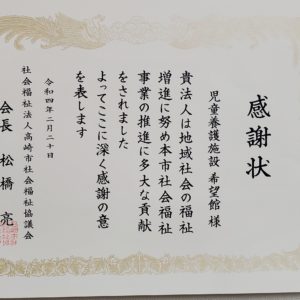 感謝状
児童養護施設 希望館 様
貴法人は地域社会の福祉
増進に努め本市社会福祉
事業の推進に多大な貢献
をされました
よってここに深く感謝の意
を表します
令和四年二月二十日
社会福祉法人高崎市社会福祉協議会
会長 松橋 亮